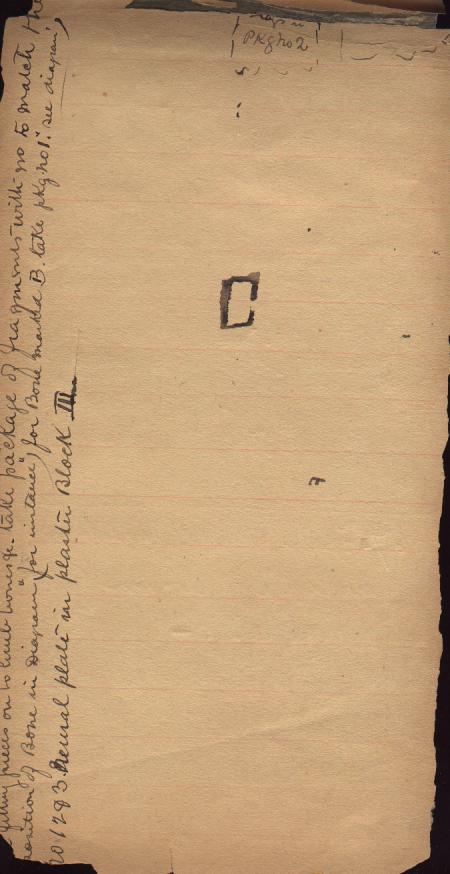 fitting pieces on to limb bones &c. take package of fragments with no to match the
position of Bone in Diagram, "for instance", for Bone marked B. take pkg no 1. see diagram,
No 1 2 & 3. Neural plate in plaster Block III
Pkg no 2
7